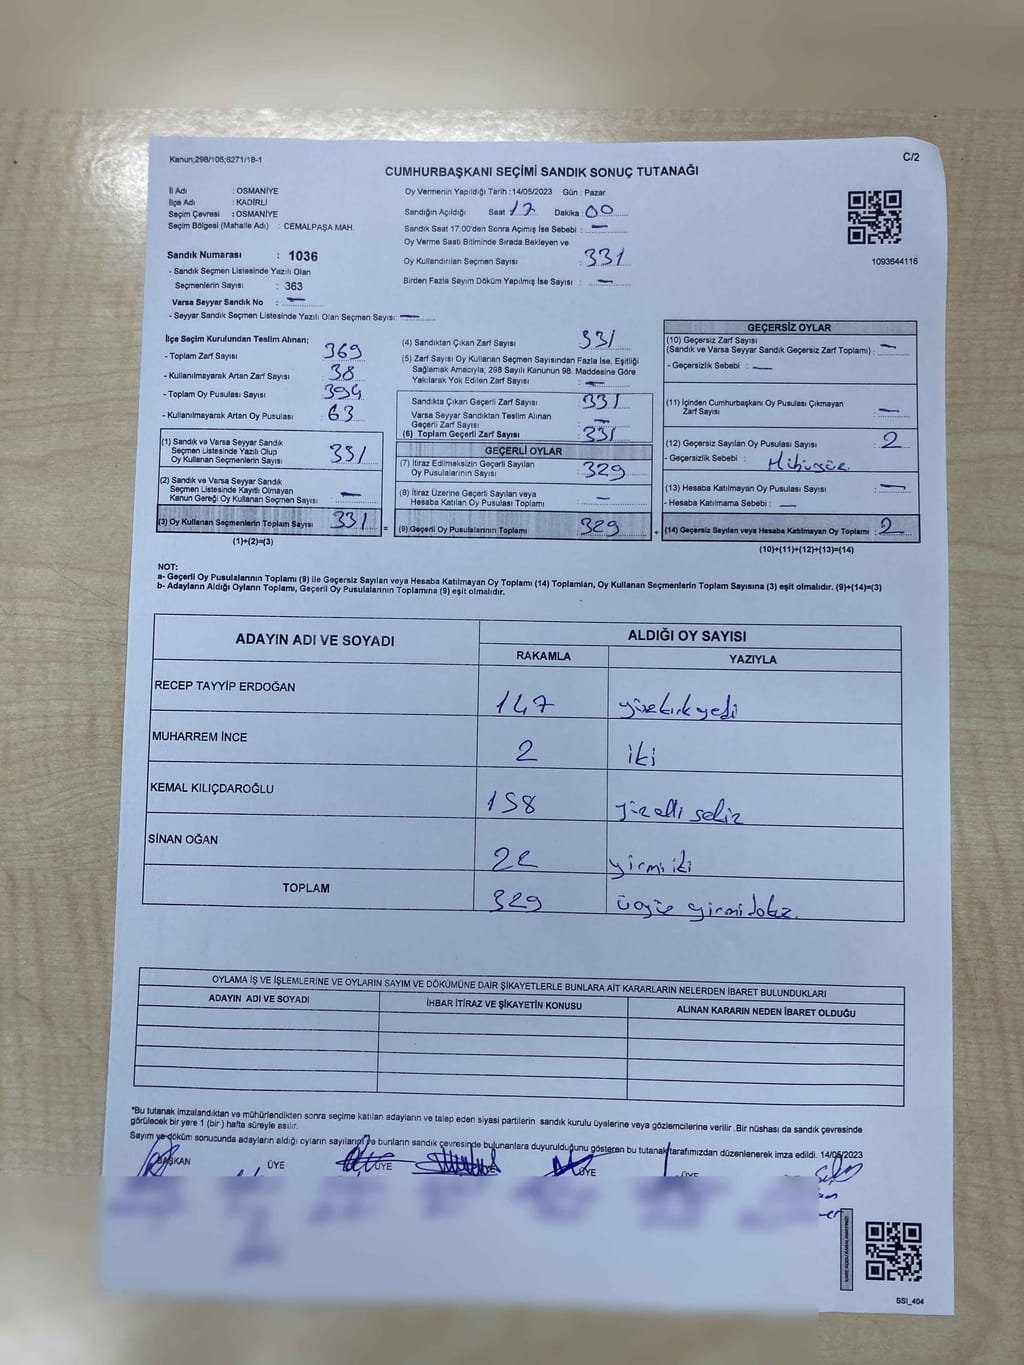 Kanun;298/105;6271/18-1
C/2
CUMHURBAŞKANI SEÇİMİ SANDIK SONUÇ TUTANAĞI
İl Adı : OSMANİYE
İlçe Adı : KADİRLİ
Seçim Çevresi : OSMANİYE
Seçim Bölgesi (Mahalle Adı) : CEMALPAŞA MAH.
Sandık Numarası : 1036
- Sandık Seçmen Listesinde Yazılı Olan
Seçmenlerin Sayısı : 363
Varsa Seyyar Sandık No : —
- Seyyar Sandık Seçmen Listesinde Yazılı Olan Seçmen Sayısı: —
Oy Vermenin Yapıldığı Tarih :14/05/2023 Gün : Pazar
Sandığın Açıldığı Saat 17 Dakika 00
Sandık Saat 17:00'den Sonra Açılmış İse Sebebi : —
Oy Verme Saati Bitiminde Sırada Bekleyen ve
Oy Kullandırılan Seçmen Sayısı : 331
Birden Fazla Sayım Döküm Yapılmış İse Sayısı : —
1093644116
İlçe Seçim Kurulundan Teslim Alınan;
- Toplam Zarf Sayısı : 369
- Kullanılmayarak Artan Zarf Sayısı : 38
- Toplam Oy Pusulası Sayısı : 394
- Kullanılmayarak Artan Oy Pusulası : 63
(1) Sandık ve Varsa Seyyar Sandık
Seçmen Listesinde Yazılı Olup
Oy Kullanan Seçmenlerin Sayısı : 331
(2) Sandık ve Varsa Seyyar Sandık
Seçmen Listesinde Kayıtlı Olmayan
Kanun Gereği Oy Kullanan Seçmen Sayısı : —
(3) Oy Kullanan Seçmenlerin Toplam Sayısı : 331 =
(1)+(2)=(3)
(4) Sandıktan Çıkan Zarf Sayısı : 331
(5) Zarf Sayısı Oy Kullanan Seçmen Sayısından Fazla İse, Eşitliği
Sağlamak Amacıyla; 298 Sayılı Kanunun 98. Maddesine Göre
Yakılarak Yok Edilen Zarf Sayısı : —
Sandıkta Çıkan Geçerli Zarf Sayısı : 331
Varsa Seyyar Sandıktan Teslim Alınan
Geçerli Zarf Sayısı : —
(6) Toplam Geçerli Zarf Sayısı : 331
GEÇERLİ OYLAR
(7) İtiraz Edilmeksizin Geçerli Sayılan
Oy Pusulalarının Sayısı : 329
(8) İtiraz Üzerine Geçerli Sayılan veya
Hesaba Katılan Oy Pusulası Toplamı : —
(9) Geçerli Oy Pusulalarının Toplamı : 329 +
GEÇERSİZ OYLAR
(10) Geçersiz Zarf Sayısı
(Sandık ve Varsa Seyyar Sandık Geçersiz Zarf Toplamı) : —
- Geçersizlik Sebebi : —
(11) İçinden Cumhurbaşkanı Oy Pusulası Çıkmayan
Zarf Sayısı : —
(12) Geçersiz Sayılan Oy Pusulası Sayısı : 2
- Geçersizlik Sebebi : Mühürsüz.
(13) Hesaba Katılmayan Oy Pusulası Sayısı : —
- Hesaba Katılmama Sebebi : —
(14) Geçersiz Sayılan veya Hesaba Katılmayan Oy Toplamı : 2
(10)+(11)+(12)+(13)=(14)
NOT:
a- Geçerli Oy Pusulalarının Toplamı (9) ile Geçersiz Sayılan veya Hesaba Katılmayan Oy Toplamı (14) Toplamları, Oy Kullanan Seçmenlerin Toplam Sayısına (3) eşit olmalıdır. (9)+(14)=(3)
b- Adayların Aldığı Oyların Toplamı, Geçerli Oy Pusulalarının Toplamına (9) eşit olmalıdır.
ADAYIN ADI VE SOYADI
ALDIĞI OY SAYISI
RAKAMLA YAZIYLA
RECEP TAYYİP ERDOĞAN 147 yüzkırkyedi
MUHARREM İNCE 2 iki
KEMAL KILIÇDAROĞLU 158 yüzelli sekiz
SİNAN OĞAN 22 yirmi iki
TOPLAM 329 üçyüz yirmi dokuz.
OYLAMA İŞ VE İŞLEMLERİNE VE OYLARIN SAYIM VE DÖKÜMÜNE DAİR ŞİKAYETLERLE BUNLARA AİT KARARLARIN NELERDEN İBARET BULUNDUKLARI
ADAYIN ADI VE SOYADI İHBAR İTİRAZ VE ŞİKAYETİN KONUSU ALINAN KARARIN NEDEN İBARET OLDUĞU
*Bu tutanak imzalandıktan ve mühürlendikten sonra seçime katılan adayların ve talep eden siyasi partilerin sandık kurulu üyelerine veya gözlemcilerine verilir .Bir nüshası da sandık çevresinde
görülecek bir yere 1 (bir ) hafta süreyle asılır.
Sayım ve döküm sonucunda adayların aldığı oyların sayılarını ve bunların sandık çevresinde bulunanlara duyurulduğunu gösteren bu tutanak tarafımızdan düzenlenerek imza edildi. 14/05/2023
BAŞKAN ÜYE ÜYE ÜYE ÜYE
SSI_404